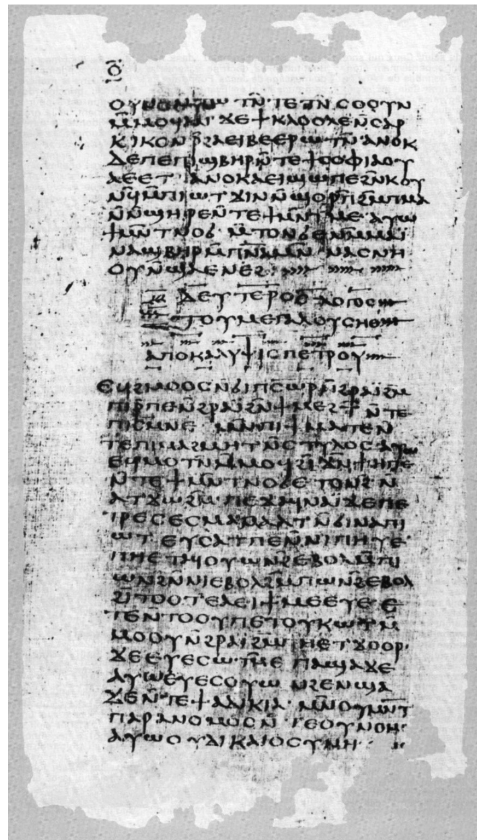 ⲟ̄
ⲧⲛ̄ⲥⲟⲟⲩⲛ
ⲙ̄ⲙⲟϥ ⲁⲛ ϫⲉ ϯⲕⲗⲟⲟⲗⲉ ⲛ̄ⲥⲁⲣ
ⲕⲓⲕⲟⲛ ⲣ̄ϩⲁⲉⲓⲃⲉ ⲉⲣⲱⲧⲛ̄ ⲁⲛⲟⲕ
ⲇⲉ ⲡⲉ ⲡⲓϣⲃⲏⲣ ⲛ̄ⲧⲉ ϯⲥⲟⲫⲓⲁ ⲟⲩ
ⲁⲉⲉⲧ· ⲁⲛⲟⲕ ⲁⲉⲓϣⲱⲡⲉ ϩⲛ̄ ⲕⲟⲩ
ⲛϥ̄ ⲙ̄ⲡⲓⲱⲧ ϫⲓⲛ ⲛ̄ϣⲟⲣⲡ̄ ϩⲙ̄ ⲡⲙⲁ
ⲛ̄ⲛ̄ϣⲏⲣⲉ ⲛ̄ⲧⲉ ϯⲙⲛ̄ⲧⲙⲉ ⲁⲩⲱ
ϯⲙⲛ̄ⲧⲛⲟϭ· ⲙ̄ⲧⲟⲛ ϭⲉ ⲛⲙ̄ⲙⲁⲓ̈
ⲛⲁϣⲃⲏⲣ ⲙ̄ⲡⲛ̄ⲁ̄ ⲙⲛ̄ ⲛⲁⲥⲛⲏ
ⲟⲩ ⲛ̄ϣⲁⲉⲛⲉϩ:
ⲇⲉⲩⲧⲉⲣⲟⲥ ⲗⲟⲅⲟⲥ
ⲧⲟⲩ ⲙⲉⲅⲁⲗⲟⲩ ⲥⲏⲑ
ⲁⲡⲟⲕⲁⲗⲩⲯⲓⲥ ⲡⲉⲧⲣⲟⲩ
ⲉϥϩⲙⲟⲟⲥ ⲛ̄ϭⲓ ⲡⲥⲱⲣ̄ ϩⲣⲁⲓ̈ ϩⲙ̄
ⲡⲓⲣⲡⲉ ⲛ̄ϩⲣⲁⲓ̈ ϩⲛ̄ ϯⲙⲉϩ ⲛ̄ⲧⲉ
ⲡⲓⲥⲙⲛⲉ ⲙⲛ̄ ⲡⲓϯⲙⲁⲧⲉ ⲛ̄
ⲧⲉ ⲡⲓⲙⲁϩⲙⲏⲧ ⲛ̄ⲥⲧⲩⲗⲟⲥ ⲁⲩⲱ
ⲉϥⲙⲟⲧⲛ̄ ⲙ̄ⲙⲟϥ ϩⲓϫⲛ̄ ϯⲏⲡⲉ
ⲛ̄ⲧⲉ ϯⲙⲛ̄ⲧⲛⲟϭ ⲉⲧⲟⲛϩ ⲛ̄
ⲁⲧϫⲱϩⲙ̄ ⲡⲉϫⲁϥ ⲛⲁⲓ̈ ϫⲉ ⲡⲉ
ⲧⲣⲉ ⲥⲉⲥⲙⲁⲙⲁⲁⲧ ⲛ̄ϭⲓ ⲛⲁⲡⲓ
ⲱⲧ ⲉⲩⲥⲁⲧⲡⲉ ⲛ̄ⲙ̄ⲡⲏⲩⲉ
ⲡⲏ ⲉⲧⲁϥⲟⲩⲱⲛϩ ⲉⲃⲟⲗ ⲙ̄ⲡⲓ
ⲱⲛϩ ⲛ̄ⲛⲓⲉⲃⲟⲗ ϩⲙ̄ ⲡⲱⲛϩ ⲉⲃⲟⲗ
ϩⲓⲧⲟⲟⲧ ⲉⲁⲉⲓϯⲙⲉⲉⲩⲉ ⲉ
ⲡⲉⲧⲟⲩⲕⲱⲧ ⲙ̄
ⲙⲟⲟⲩ ⲛ̄ϩⲣⲁⲓ̈ ϩⲙ̄ ⲡⲉⲧϫⲟⲟⲣ·
ϫⲉ ⲉⲩⲉⲥⲱⲧⲙ̄ ⲉⲡⲁϣⲁϫⲉ
ⲁⲩⲱ ⲉⲩⲉⲥⲟⲩⲱⲛ ϩⲉⲛϣⲁ
ϫⲉ ⲛ̄ⲧⲉ ϯⲁⲇⲓⲕⲓⲁ ⲙⲛ̄ ⲟⲩⲙⲛ̄ⲧ
ⲡⲁⲣⲁⲛⲟⲙⲟⲥ ⲛ̄
ⲁⲩⲱ ⲟⲩⲇⲓⲕⲁⲓⲟⲥⲩⲛⲏ